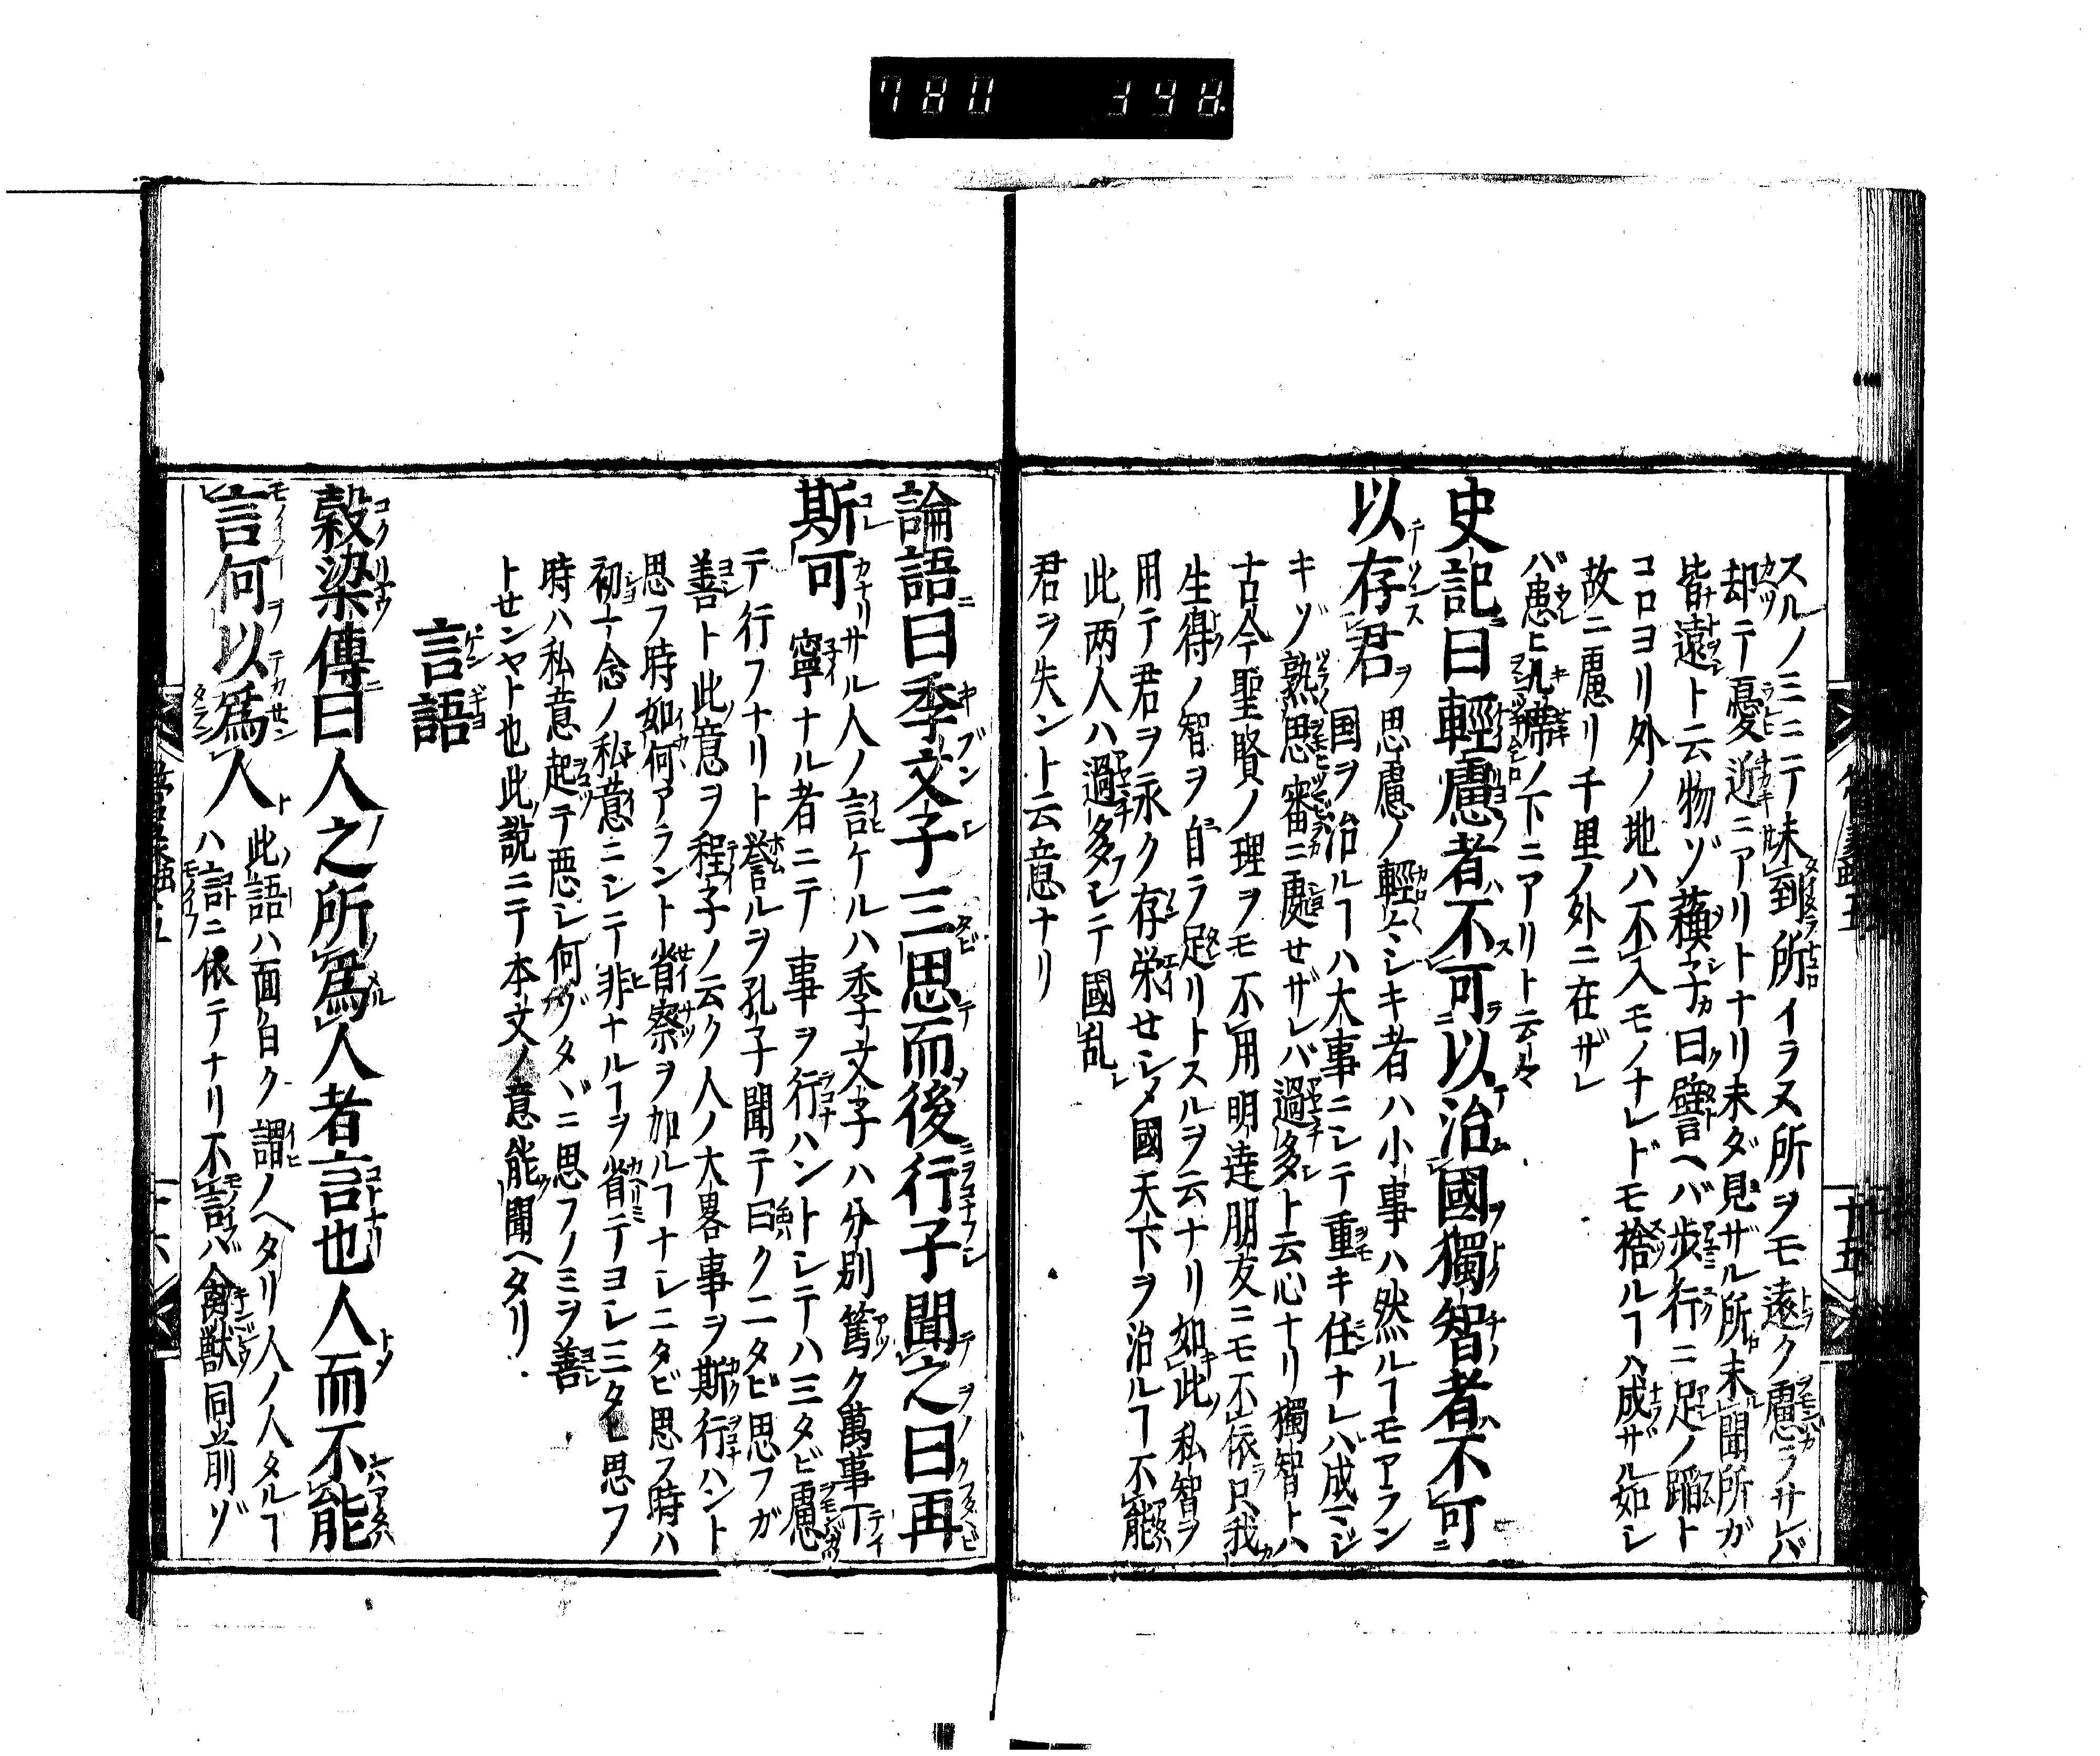 780 398
スルノミニテ未到所イラヌ所ヲモ遠ク慮ラサレバ
却テ憂近ニアリトナリ未ダ見ザル所未聞所ガ
皆遠ト云物ゾ蘓子カ曰ク譬言ヘバ歩行ニ足ノ蹈ト
コロヨリ外ノ地ハ不入モノナレドモ捨ルヿハ成ザル如シ
故ニ慮リ千里ノ外ニ在ザレ
バ患ヒ几席ノ下ニアリト云々
史記曰輕慮者不可以治國獨智者不可
以存君
思慮ノ輕々シキ者ハ小事ハ然ルヿモアラン
国ヲ治ルヿハ大事ニシテ重キ任ナレバ成マジ
キゾ熟思審ニ處せザレバ過多ト云心ナリ獨智トハ
古今聖賢ノ理ヲモ不用明達朋友ニモ不依只我
生得ノ智ヲ自ラ足リトスルヲ云ナリ如此私智ヲ
用テ君ヲ永ク存栄せシメ國天下ヲ治ルヿ不能
此両人ハ過多シテ國乱
君ヲ失ント云意ナリ
廿五
論語曰季文子三思而後行子聞之曰再
斯可
サル人ノ言ケルハ季文子ハ分別篤ク萬事丁
寧ナル者ニテ事ヲ行ハントシテハ三タビ慮
テ行フナリト誉ルヲ孔子聞テ曰ク二タビ思フガ
善ト此意ヲ程子ノ云ク人ノ大畧事ヲ斯行ハント
思フ時如何アラント省察ヲ加ルヿナシ二タビ思フ時ハ
初一念ノ私意ニシテ非ナルヿヲ省テヨシ三タビ思フ
時ハ私意起テ悪シ何ゾタヾニ思フノミヲ善
トせンヤト也此説ニテ本文ノ意能聞ヘタリ
言語
穀梁傳曰人之所爲人者言也人而不能
言何以爲人
此語ハ面白ク謂ノヘタリ人ノ人タルヿ
ハ言ニ依テナリ不言バ禽獣同前ゾ